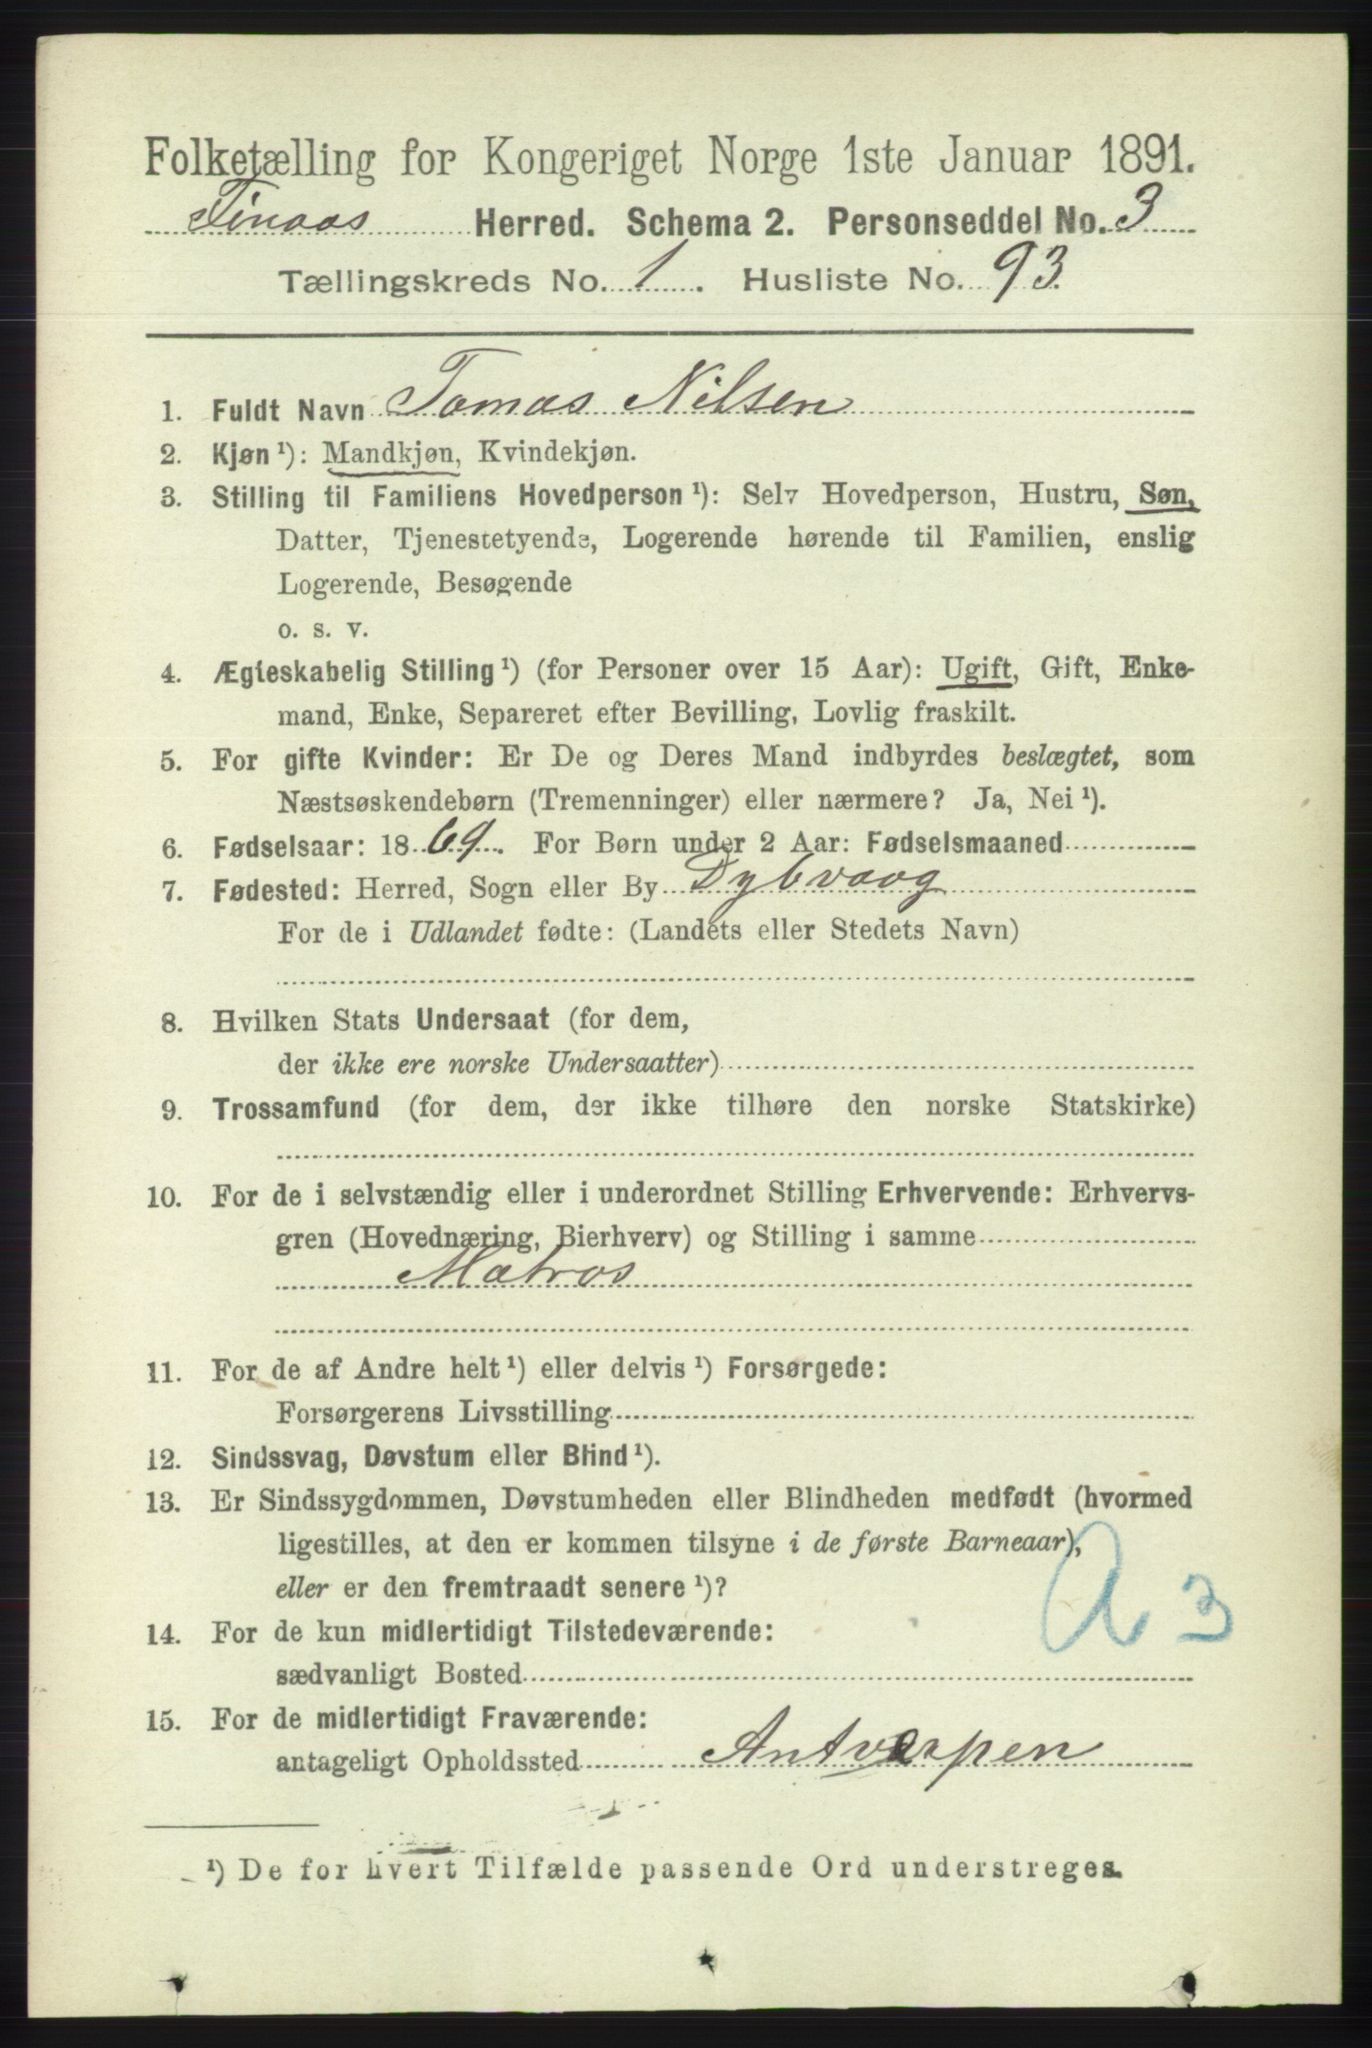 Folketælling for Kongeriget Norge 1ste Januar 1891.
Finaas Herred. Schema 2. Personseddel No. 3
Tællingskreds No. 1. Husliste No. 93.
1. Fuldt Navn Tomas Nilsen
2. Kjøn¹): Mandkjøn, Kvindekjøn.
3. Stilling til Familiens Hovedperson¹): Selv Hovedperson, Hustru, Søn,
Datter, Tjenestetyende, Logerende hørende til Familien, enslig
Logerende, Besøgende
o. s. v.
4. Ægteskabelig Stilling¹) (for Personer over 15 Aar): Ugift, Gift, Enke-
mand, Enke, Separeret efter Bevilling, Lovlig fraskilt.
5. For gifte Kvinder: Er De og Deres Mand indbyrdes beslægtet, som
Næstsøskendebørn (Tremenninger) eller nærmere? Ja, Nei¹).
6. Fødselsaar: 1869. For Børn under 2 Aar: Fødselsmaaned
7. Fødested: Herred, Sogn eller By Dybvaag
For de i Udlandet fødte: (Landets eller Stedets Navn)
8. Hvilken Stats Undersaat (for dem,
der ikke ere norske Undersaatter)
9. Trossamfund (for dem, der ikke tilhøre den norske Statskirke)
10. For de i selvstændig eller i underordnet Stilling Erhvervende: Erhvervs-
gren (Hovednæring, Bierhverv) og Stilling i samme
Matros
11. For de af Andre helt¹) eller delvis¹) Forsørgede:
Forsørgerens Livsstilling
12. Sindssvag, Døvstum eller Blind¹).
13. Er Sindssygdommen, Døvstumheden eller Blindheden medfødt (hvormed
ligestilles, at den er kommen tilsyne i de første Barneaar),
eller er den fremtraadt senere¹)?
A 3
14. For de kun midlertidigt Tilstedeværende:
sædvanligt Bosted
15. For de midlertidigt Fraværende:
antageligt Opholdssted Antverpen
¹) De for hvert Tilfælde passende Ord understreges.